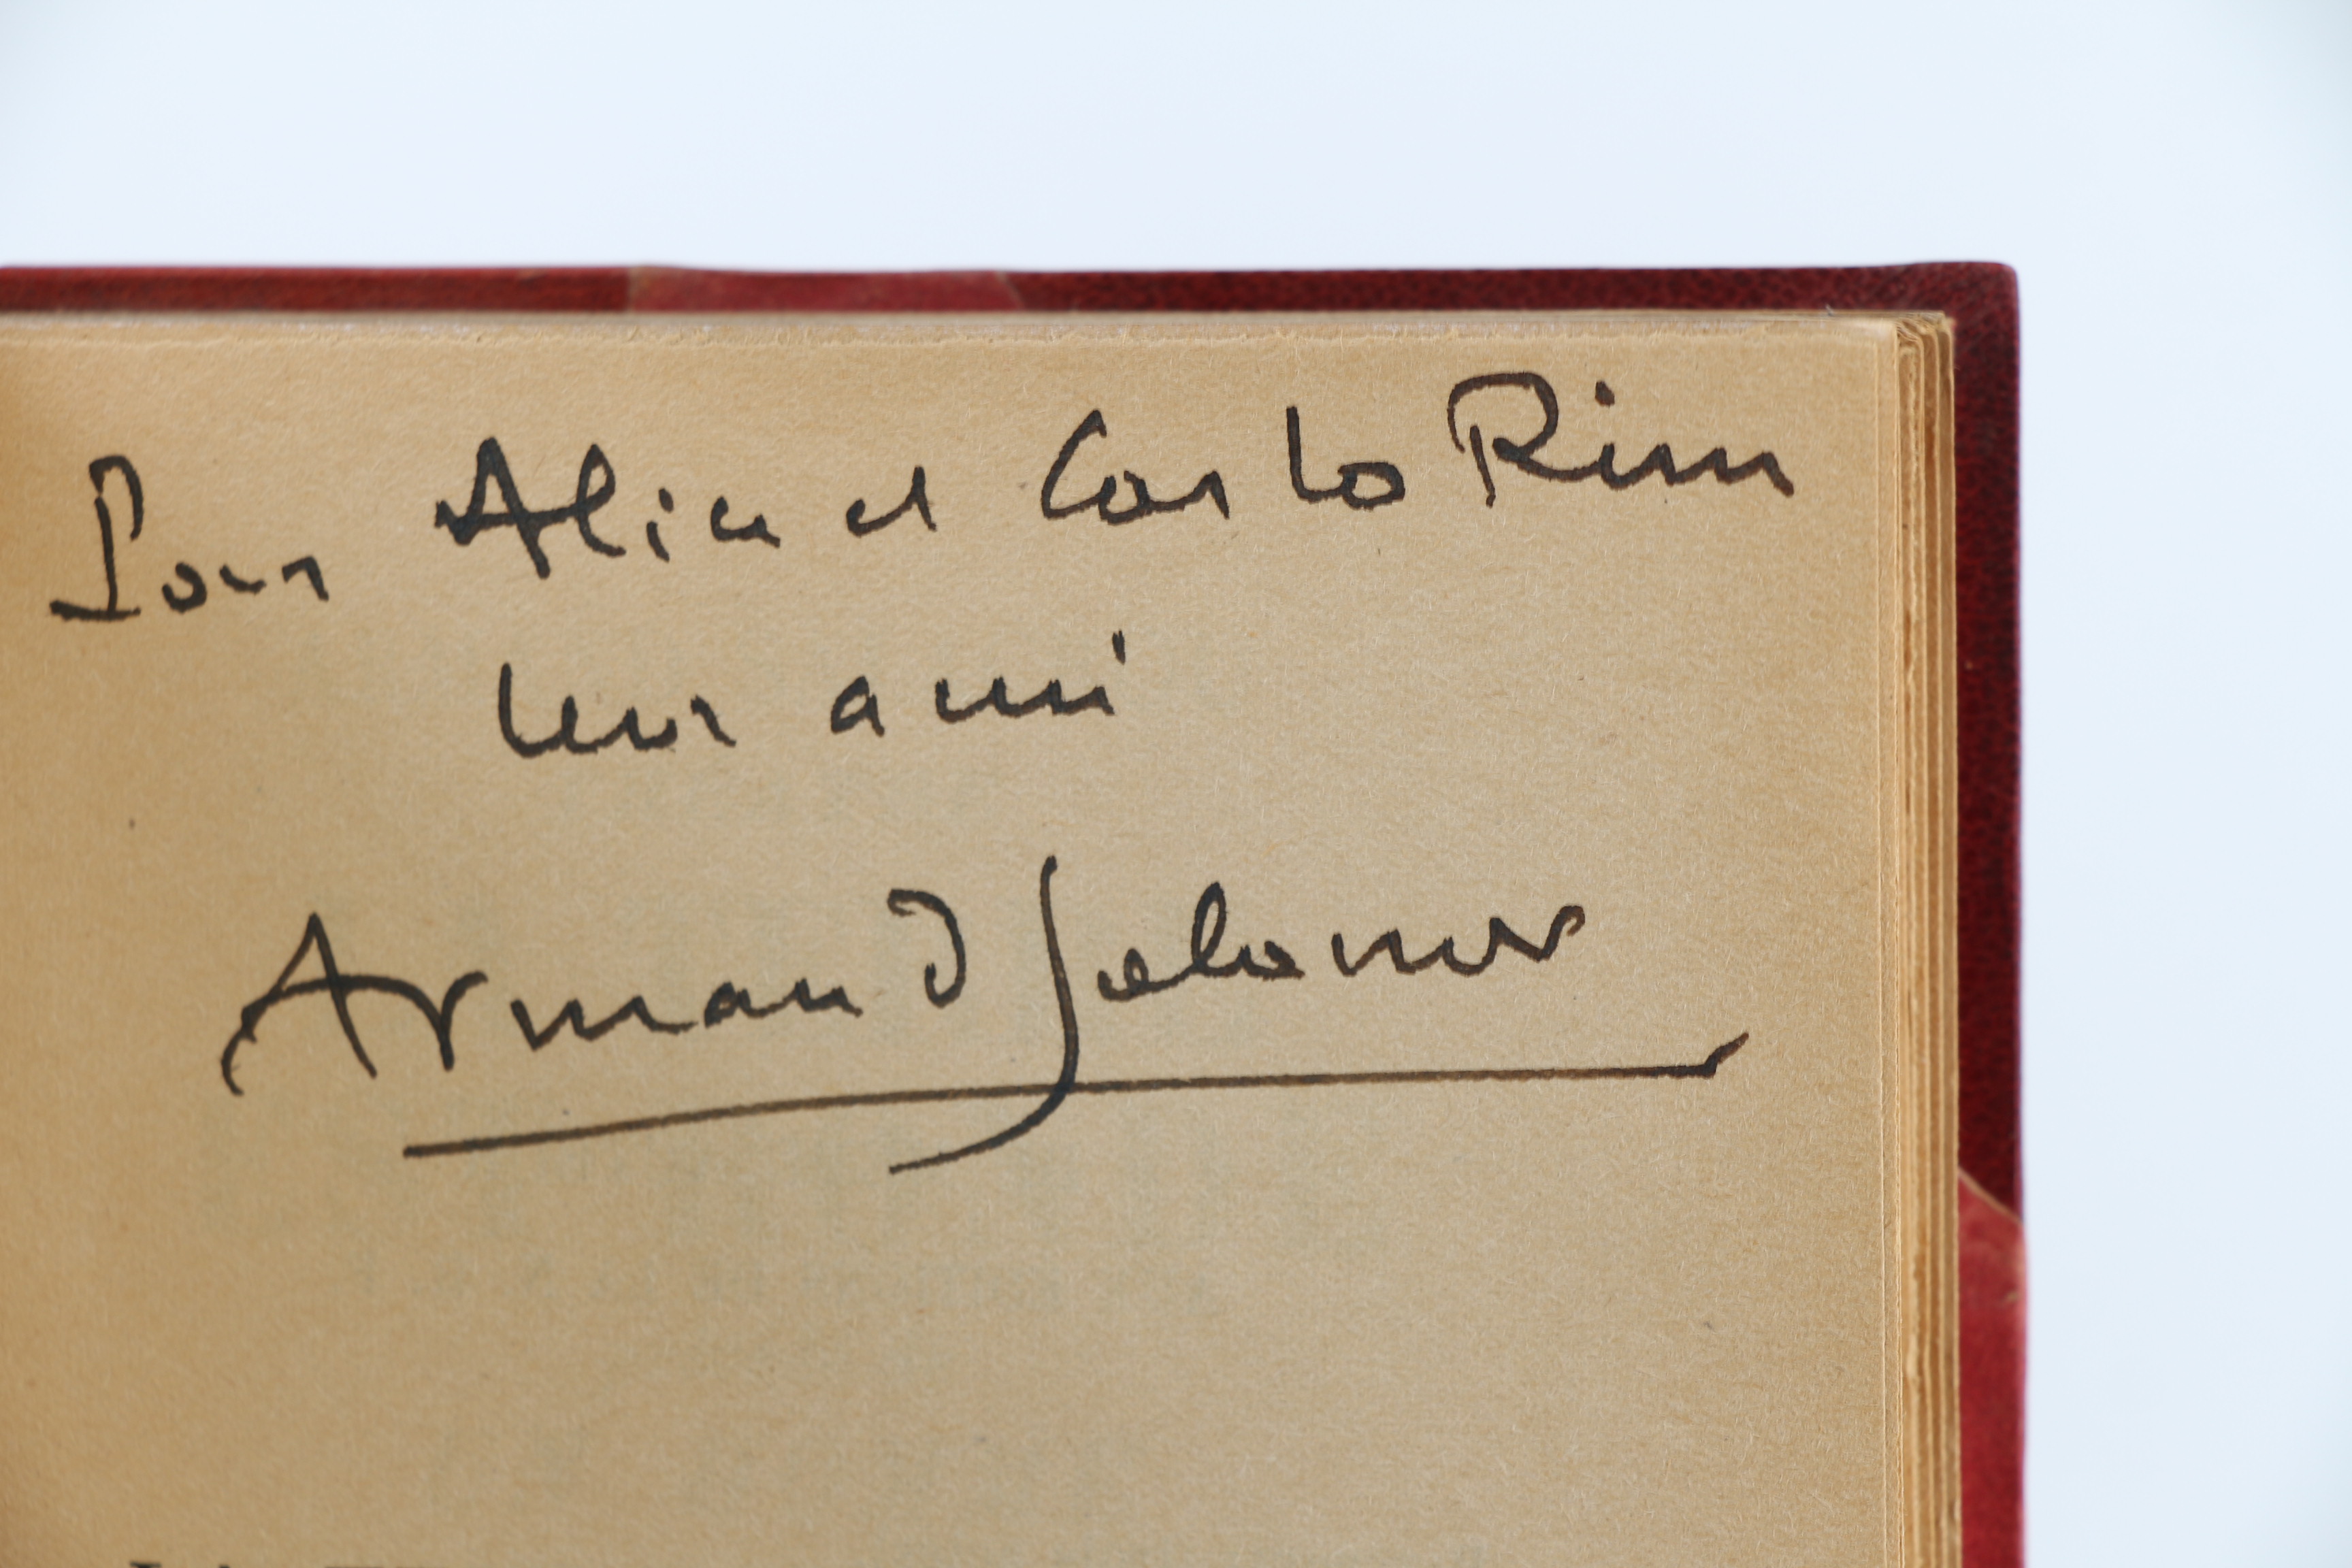 Pour Alice et Carlo Rim
leur ami
Armand Salacrou